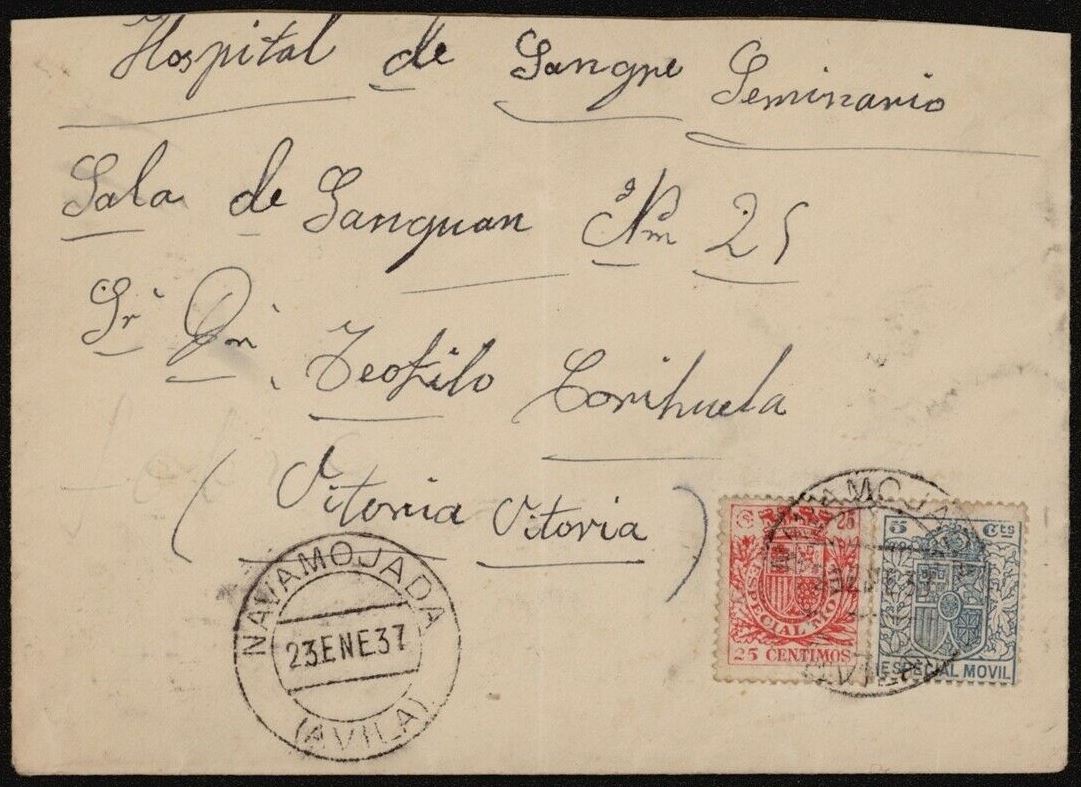 Hospital de Sangre Seminario
Sala de Sanguan Nm 25
Sr Dn Teofilo Corihuela
(Vitoria Vitoria)
NAVAMOJADA
23 ENE 37
(AVILA)
25
ESPECIAL MOVIL
25 CENTIMOS
5 Cts
ESPECIAL MOVIL
NAVAMOJADA